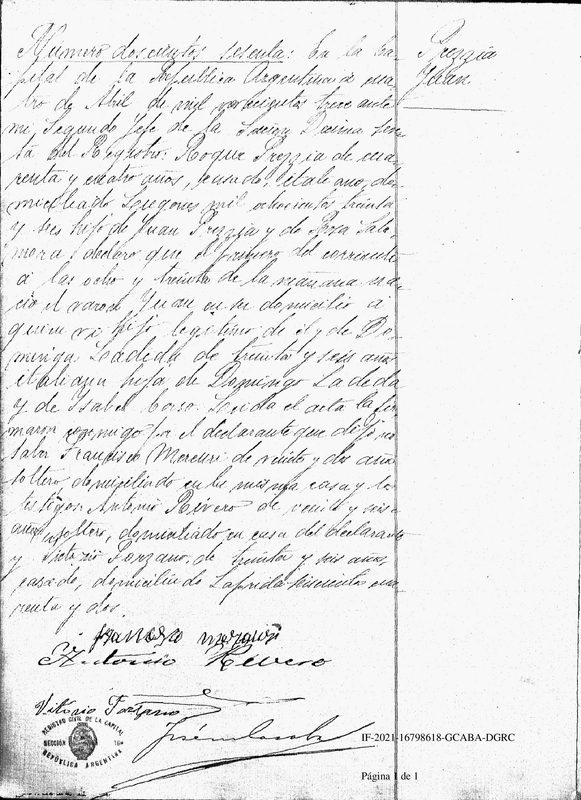 Número doscientos sesenta: En la Ca-
pital de la República Argentina a cua-
tro de Abril de mil novecientos trece ante
mi, Segundo Jefe de la Sección Décima sex-
ta del Registro: Roque Prezzia de cua-
renta y cuatro años, casado, italiano, do-
miciliado Lugones mil ochocientos treinta
y seis hijo de Juan Prezzia y de Rosa Sala-
mara declaró que el primero del corriente
a las ocho y treinta de la mañana na-
ció el varon Juan en su domicilio a
quien vi hijo legitimo de él y de Do-
minga Ladeda de treinta y seis años
italiana hija de Domingo Ladeda
y de Isabel Corso. Leida el acta la fir-
maron conmigo por el declarante que dijo no
saber Francisco Mercuri de veinte y dos años
soltero, domiciliado en la misma casa y los
testigos: Antonio Rivero de veinte y seis
años soltero, domiciliado en casa del declarante
y Porzano, de treinta y seis años,
casado, domiciliado Laprida seiscientos cua-
renta y dos.
Prezzia
Juan
Antonio Rivero
Vitorio
REGISTRO CIVIL DE LA CAPITAL
SECCIÓN 16a
REPÚBLICA ARGENTINA
IF-2021-16798618-GCABA-DGRC
Página 1 de 1